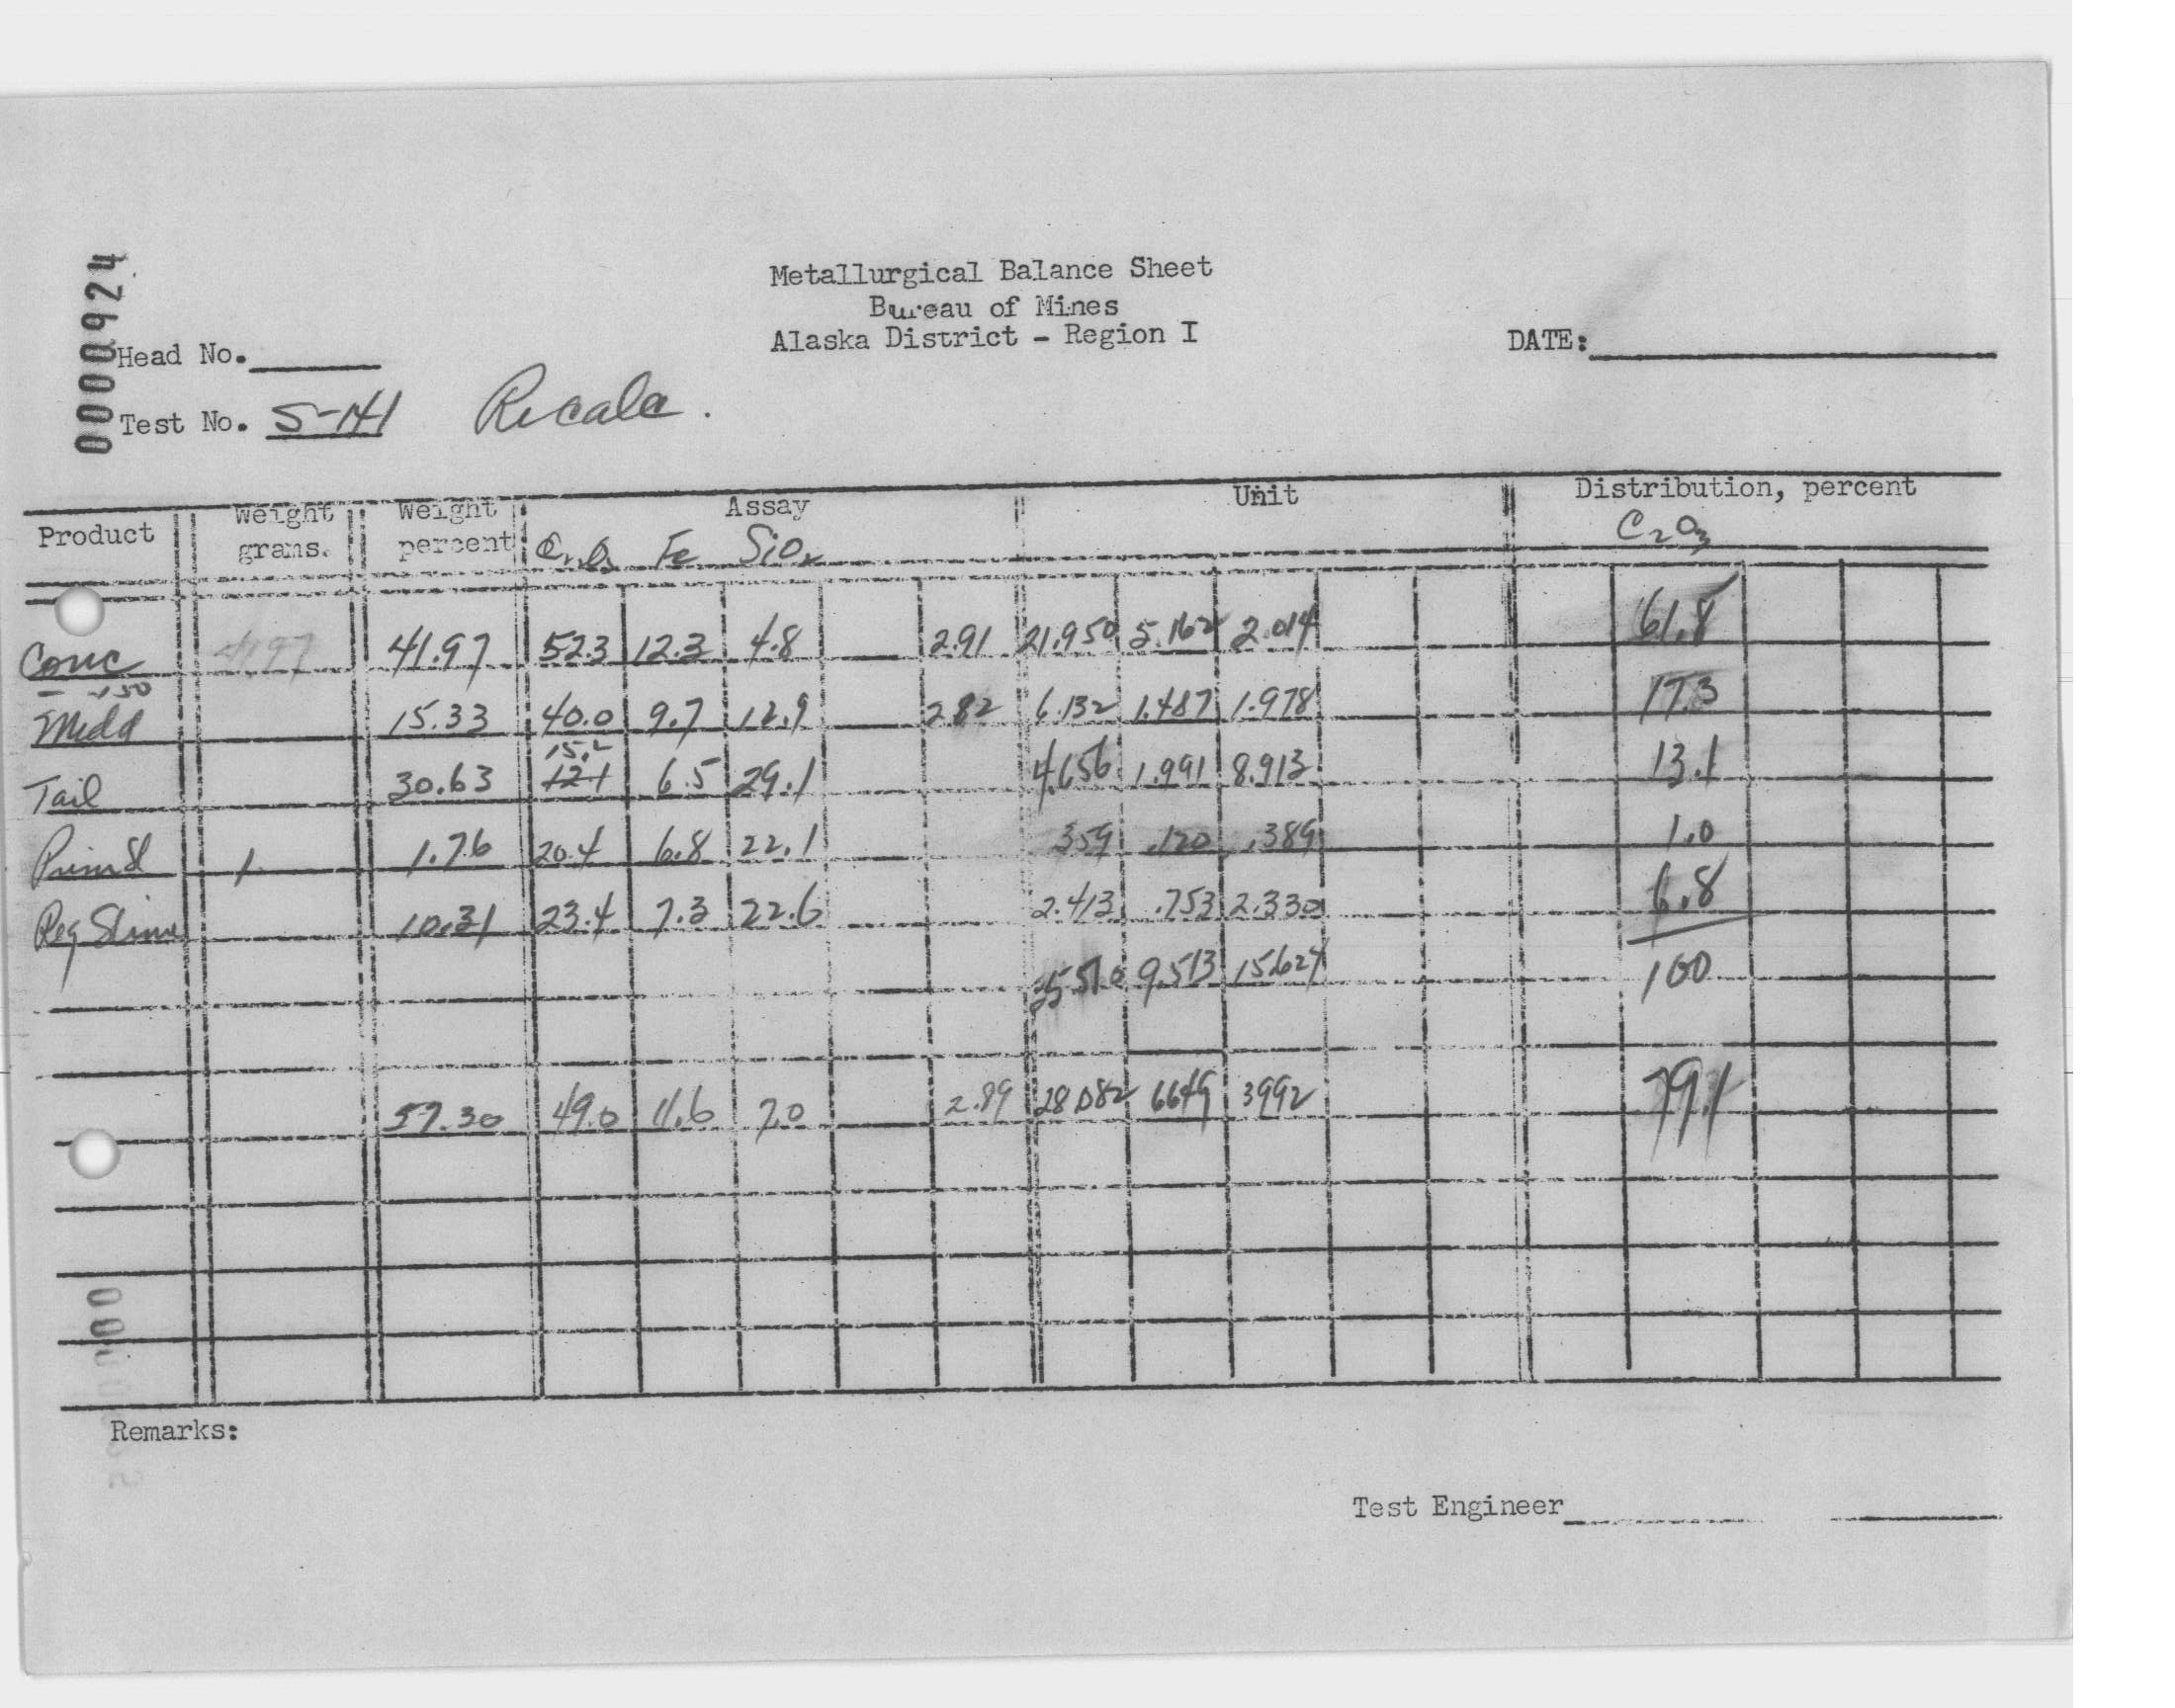 0000924
Metallurgical Balance Sheet
Bureau of Mines
Alaska District - Region I
Head No.
DATE:
Test No. S-141 Recalc.
Product Weight grams. Weight percent Assay Unit Distribution, percent
Cr2O3 Fe SiO2 Cr2O3
Conc 41.97 41.97 52.3 12.3 4.8 2.91 21.950 5.162 2.014 61.8
Midd 15.33 40.0 9.7 12.9 2.82 6.132 1.487 1.978 17.3
15.2
Tail 30.63 12.1 6.5 29.1 4.656 1.991 8.913 13.1
Prim Sl 1. 1.76 20.4 6.8 22.1 .359 .120 .389 1.0
Reg Slime 10.31 23.4 7.3 22.6 2.413 .753 2.330 6.8
35.510 9.513 15.624 100
57.30 49.0 11.6 7.0 2.89 28.082 6649 3992 79.1
Remarks:
Test Engineer